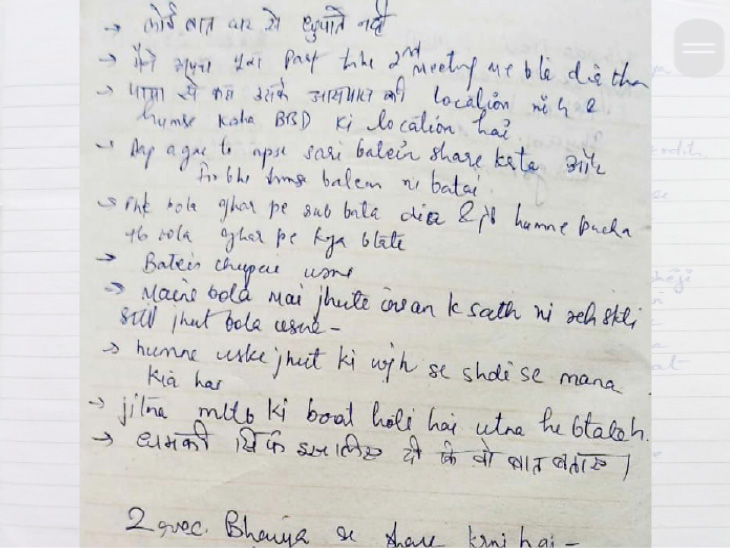 → कोई बात घर से छुपाते नहीं
→ मैंने अपना पूरा past life 2nd meeting me ble die tha
→ पापा से कहा उनके आसपास की location ni h &
humse kaha BBD ki location hai
→ Aap agae to apse sari batein share krta और
fir bhi humse batein ni batai
→ Phle bola ghar pe sub bata diea & jb humne pucha
tb bola ghar pe kya btate
→ Batein chupai usne
→ Maine bola mai jhute insan k sath ni reh skti
still jhut bola usne -
→ humne uske jhut ki wjh se shdi se mana
kia hai
→ jitna mltb ki baat hoti hai utna he btateh.
→ धमकी सिर्फ इसलिए दी कि वो बात बताए।
2 Bhaiya se share krni hai -